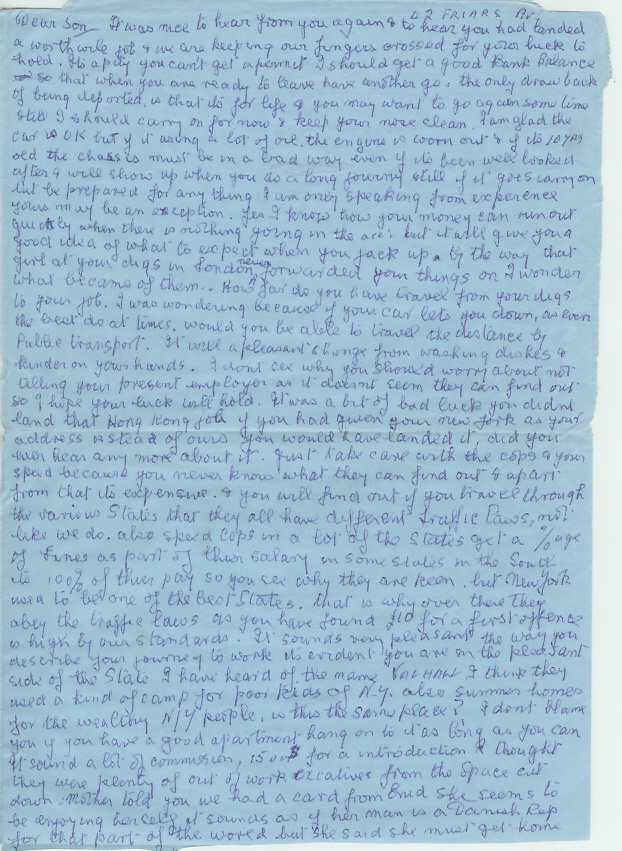 62 FRIARS Av.
Dear Son It was nice to hear from you again & to hear you had landed
a worthwile job & we are keeping our fingers crossed for your luck to
hold. Its a pity you can't get a permit I should get a good Bank Balance
so that when you are ready to leave have another go, the only draw back
of being deported, is that its for life & you may want to go again some time
still I should carry on for now & keep your nose clean. I am glad the
car is OK but if it using a lot of oil the engine is worn out & if its 10 yrs
old the chassis must be in a bad way even if its been well looked
after & will show up when you do a long journey still if it goes carry on
but be prepared for any thing I am only speaking from experience
yours may be an exception. Yes I know how your money can run out
quickly when there is nothing going in the acc. but it will give you a
good idea of what to expect when you jack up. by the way that
girl at your digs in London never forwarded your things on I wonder
what became of them.. How far do you have travel from your digs
to your job. I was wondering because if your car lets you down, as even
the best do at times, would you be able to travel the distance by
Public transport. It will a pleasant change from washing dishes &
kinder on your hands. I dont see why you should worry about not
telling your present employer as it doesnt seem they can find out
so I hope your luck will hold. It was a bit of bad luck you didnt
land that Hong Kong job if you had given your new York as your
address instead of ours you would have landed it, did you
ever hear any more about it. Just take care with the cops & your
speed because you never know what they can find out & apart
from that its expensive. & you will find out if you travel through
the various States that they all have different traffic laws, not
like we do. also speed cops in a lot of the States get a %age
of fines as part of thier salary in some states in the South
its 100% of thier pay so you see why they are keen. but New York
used to be one of the best States. that is why over there they
obey the traffic laws as you have found £10 for a first offence
is high by our standards. It sounds very pleasant the way you
describe your journey to work its evident you are on the pleasant
side of the State I have heard of the name VALHALL I think they
used a kind of camp for poor kids of N.Y. also summer homes
for the wealthy N/Y people, is this the same place? I dont blame
you if you have a good apartment hang on to it as long as you can
It sound a lot of commission, for a introduction & thought
they were plenty of out of work creatives from the Space cut
down. Mother told you we had a card from Enid she seems to
be enjoying herself it sounds as if her man is a Danish Rep
for that part of the world but she said she must get home